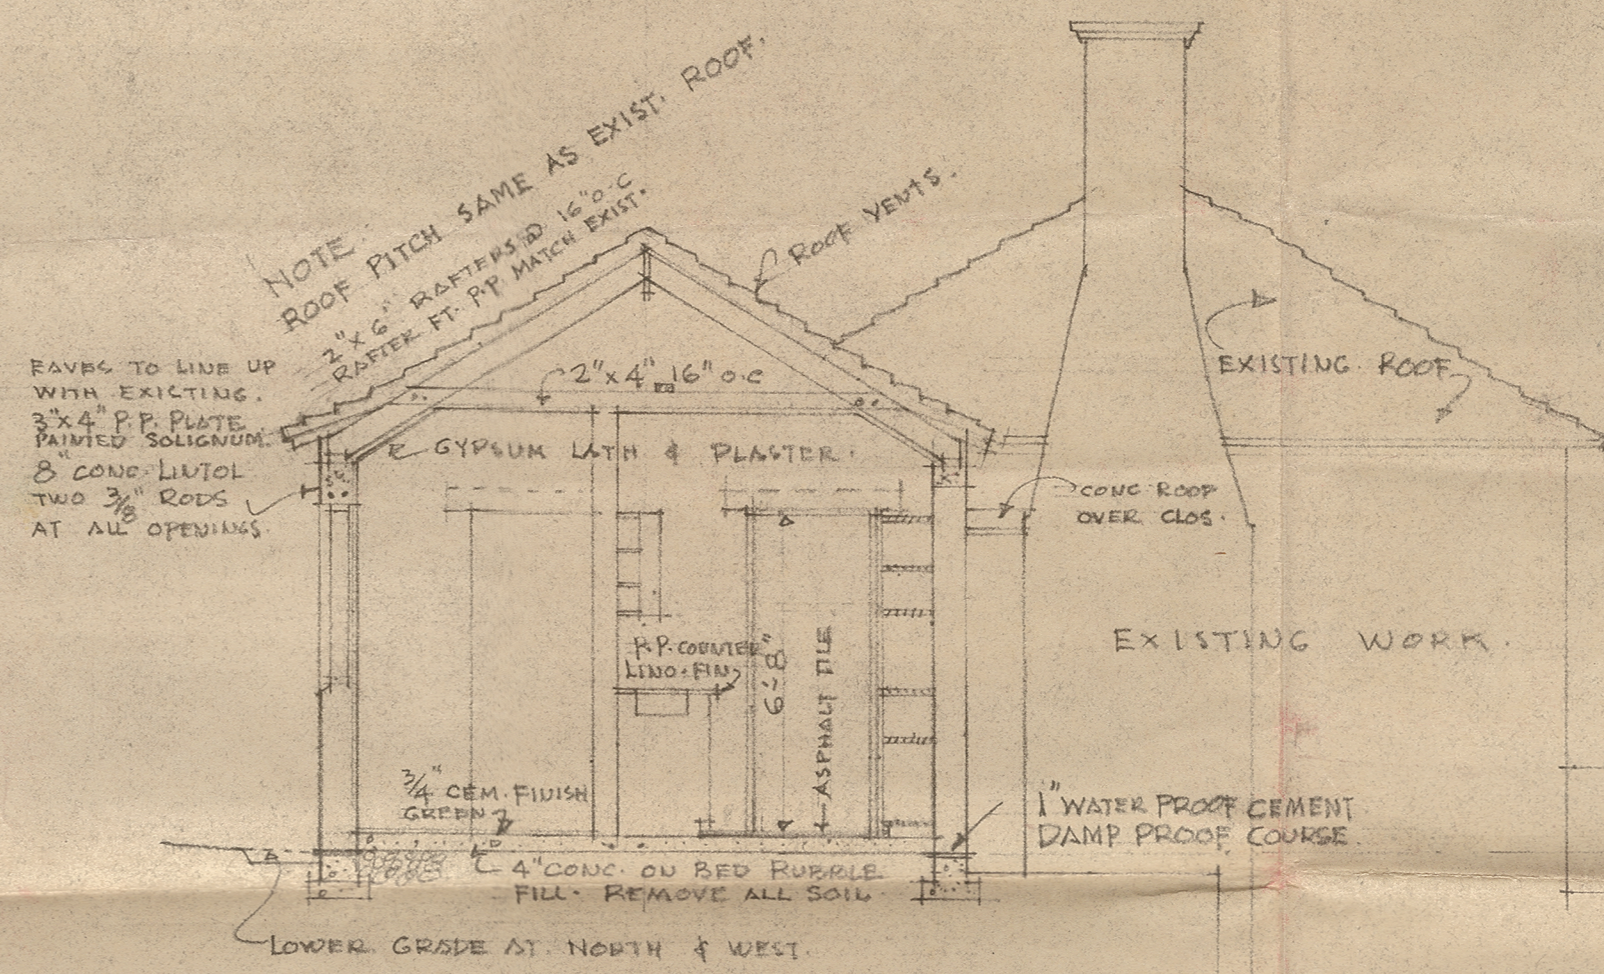 NOTE.
ROOF PITCH SAME AS EXIST. ROOF.
2"x6" RAFTERS @ 16" O-C
RAFTER FT. P.P MATCH EXIST.
ROOF VENTS.
EAVES TO LINE UP
WITH EXISTING.
3"x4" P.P. PLATE
PAINTED SOLIGNUM.
8" CONC. LINTOL
TWO 3/8" RODS
AT ALL OPENINGS.
2"x4" @ 16" O-C
GYPSUM LATH & PLASTER.
EXISTING ROOF
CONC ROOF
OVER CLOS.
EXISTING WORK.
P.P. COUNTER
LINO. FIN.
6'-8"
ASPHALT TILE
3/4" CEM. FINISH
GREEN
1" WATER PROOF CEMENT
DAMP PROOF COURSE.
4" CONC. ON BED RUBBLE
FILL. REMOVE ALL SOIL.
LOWER GRADE AT NORTH & WEST.